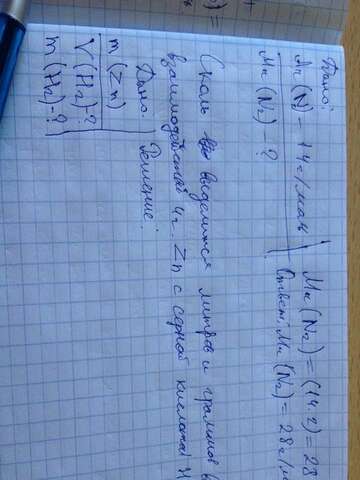 Дано:
Ar(N) - 14 г/моль
Mr(N₂) - ?
Mr(N₂) = (14·2) = 28
Ответ: Mr(N₂) = 28 г/м
Сколь выделится литров и граммов в
взаимодействий 4 г. Zn с серной кислотой
Дано:
m(Zn)
V(H₂)-?
m(H₂)-?
Решение: